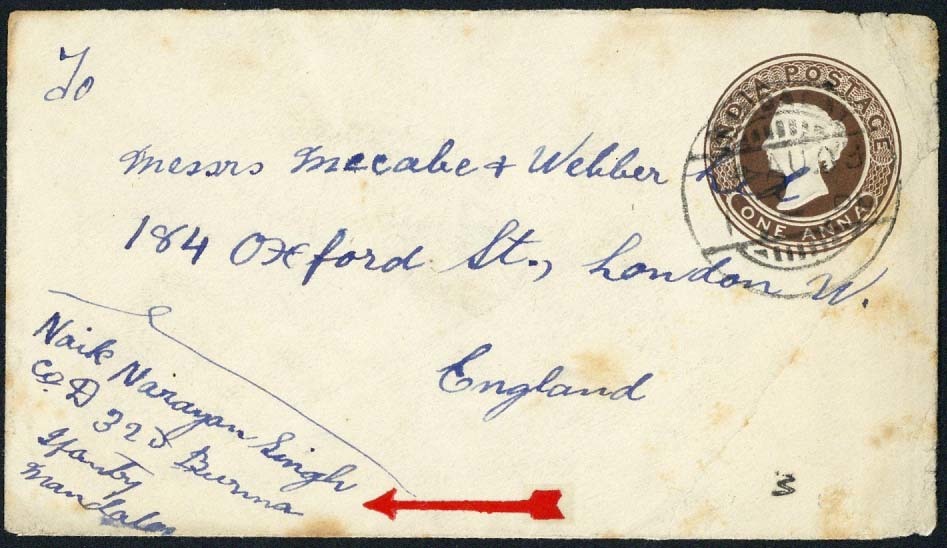 To
INDIA POSTAGE
ONE ANNA
Messrs Mccabe & Webber
184 Oxford St., London W.
England
Naik Narayan Singh
Co. D 325 Burma
Ifantry
Mandalay